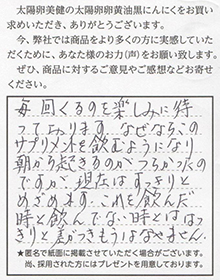 太陽卵美健の太陽卵卵黄油黒にんにくをお買い
求めいただき、ありがとうございます。
今、弊社では商品をより多くの方に実感していた
だくために、あなた様のお力(声)をお願い致します。
ぜひ、商品に対するご意見やご感想などお寄せ
ください。
毎回くるのを楽しみに待
っております。なぜならこの
サプリメントを飲むようになり
朝から起きるのがつらかったの
ですが、現在はすっきりと
めざめます。これを飲んだ
時と飲んでない時とははっ
きりと差がつきもうはなせません。
★匿名で紙面に掲載させていただく場合がございます。
尚、採用された方にはプレゼントを用意しております。